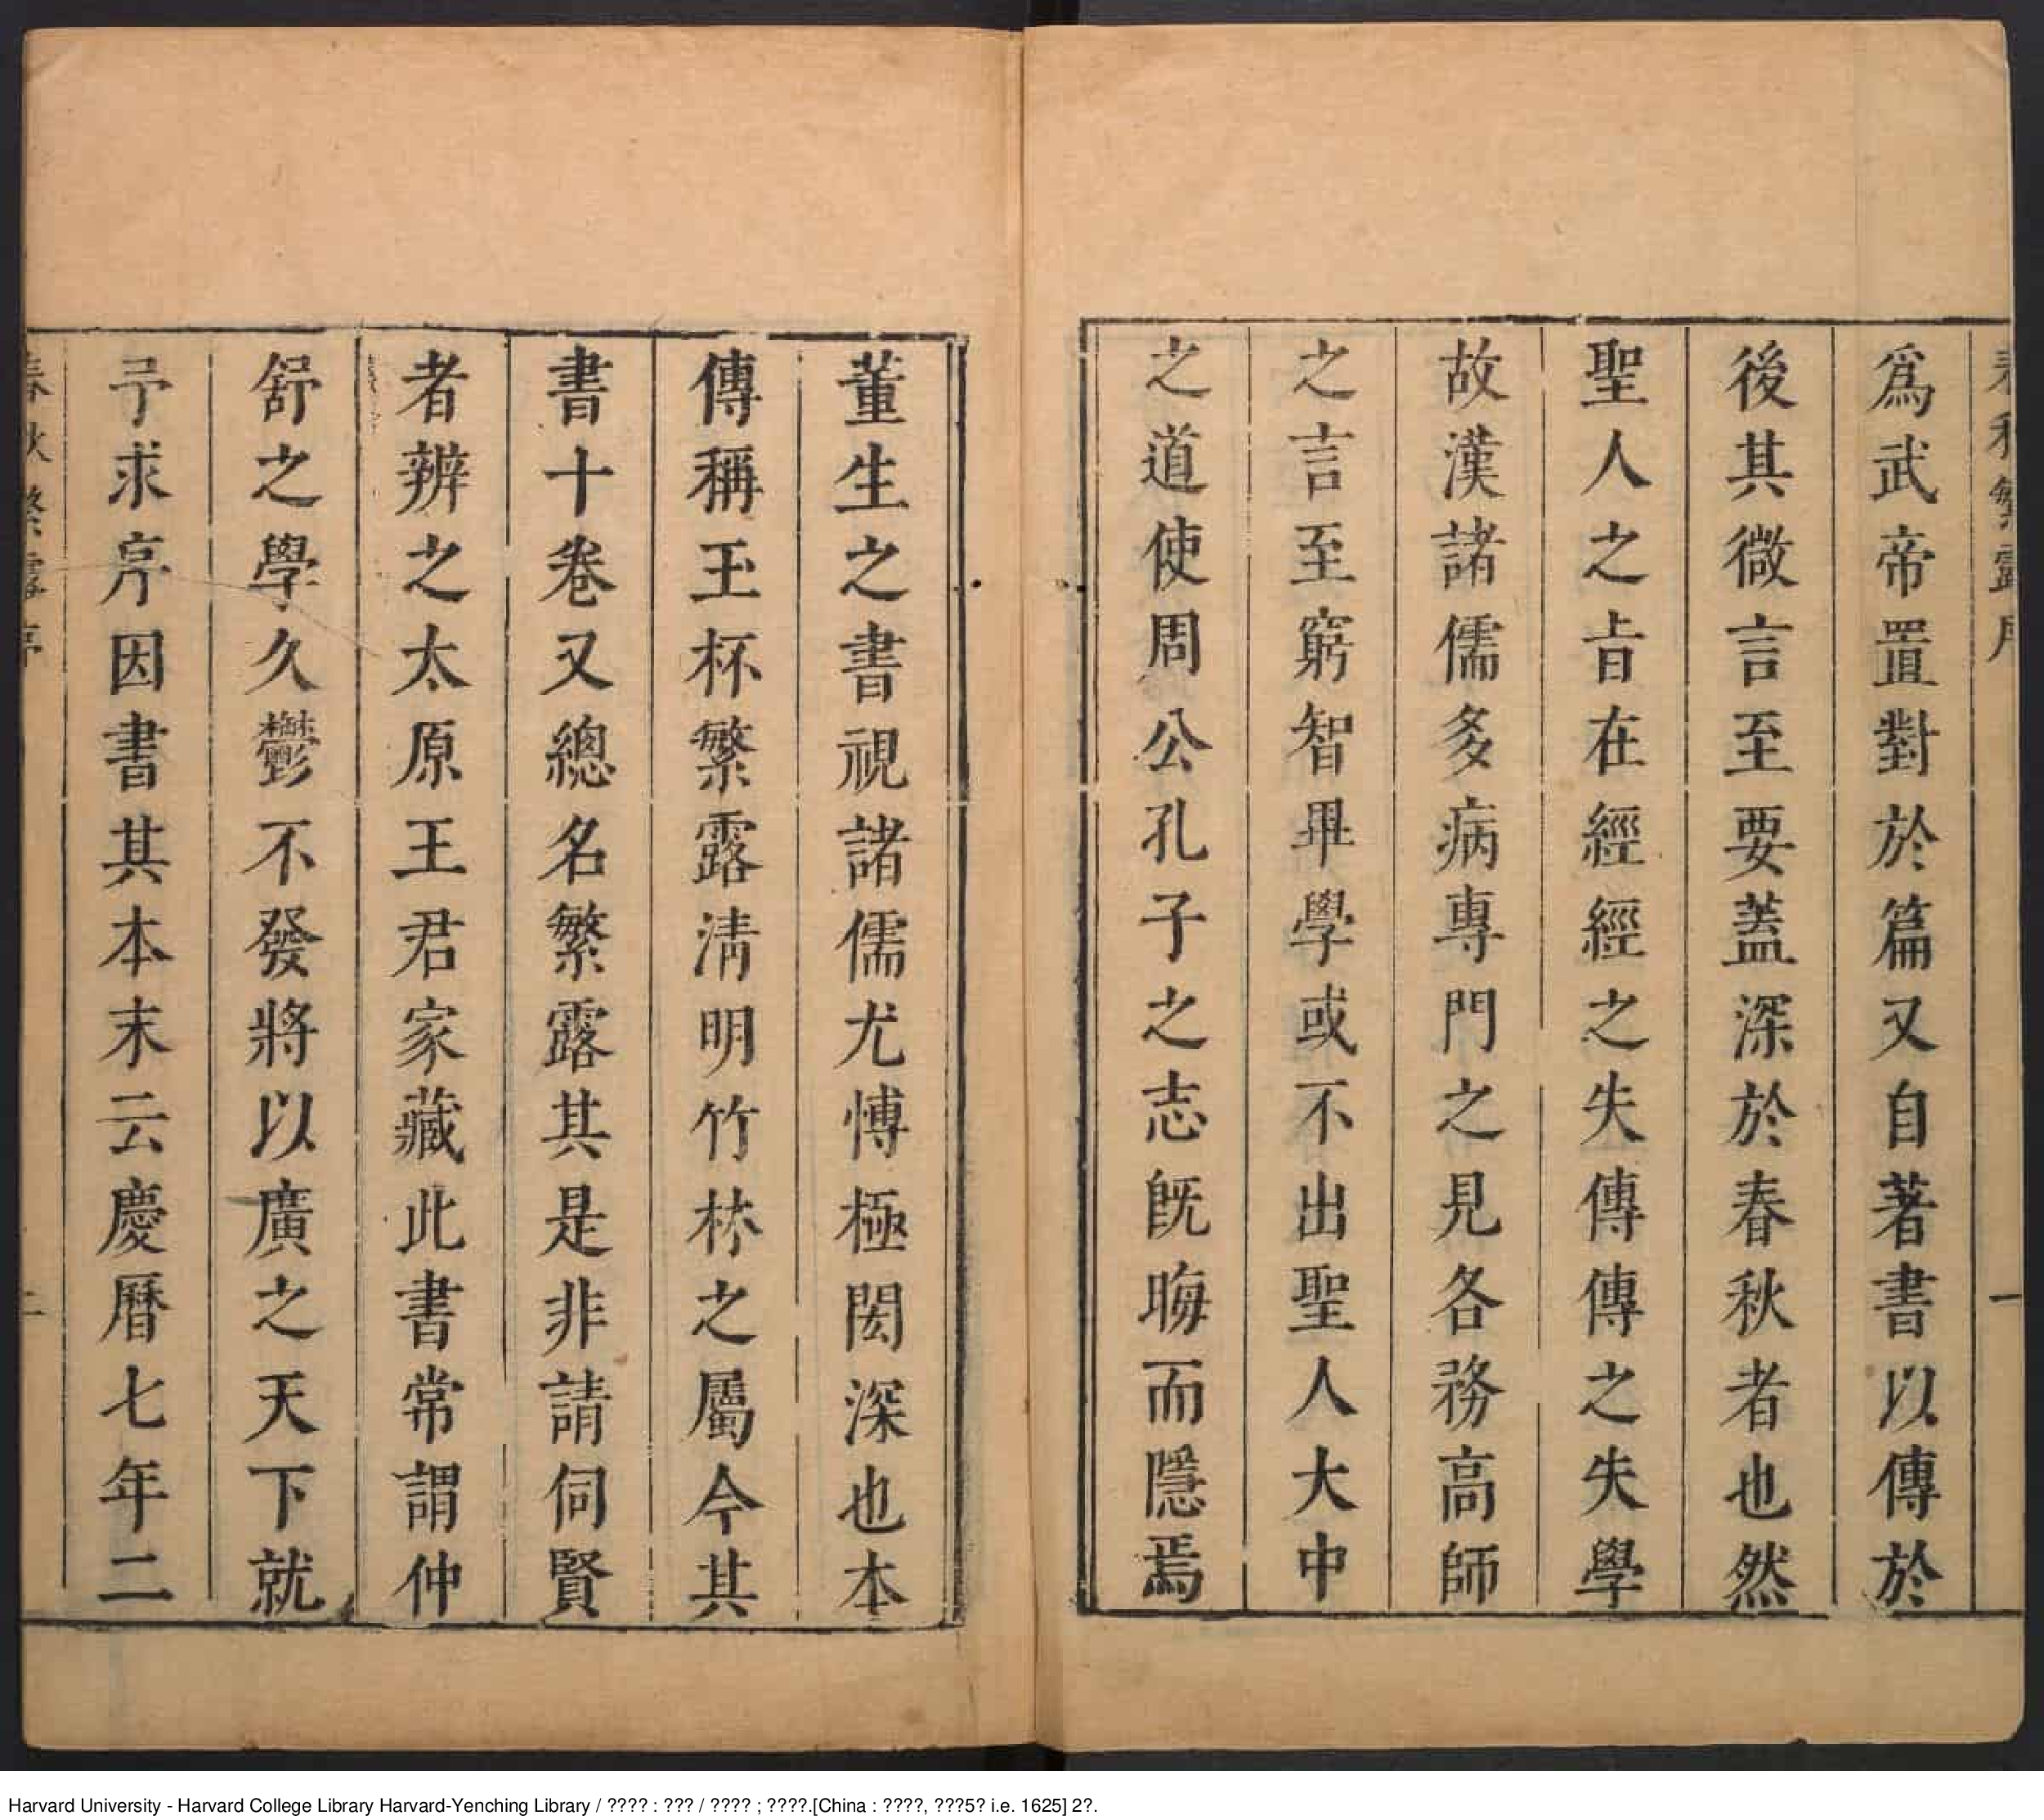 爲武帝置對於篇又自著書以傳於
後其微言至要蓋深於春秋者也然
聖人之㫖在經經之失傳傳之失學
故漢諸儒多病專門之見各務高師
之言至窮智畢學或不出聖人大中
之道使周公孔子之志旣晦而隱焉
董生之書視諸儒尤愽極閎深也本
傳稱玉杯繁露淸明竹林之屬今其
書十卷又總名繁露其是非請伺賢
者辨之太原王君家藏此書常謂仲
舒之學久鬱不發將以廣之天下就
予求序因書其本末云慶曆七年二
春秋繁露序
二
Harvard University - Harvard College Library Harvard-Yenching Library / ???? : ??? / ???? ; ????.[China : ????, ???5? i.e. 1625] 2?.